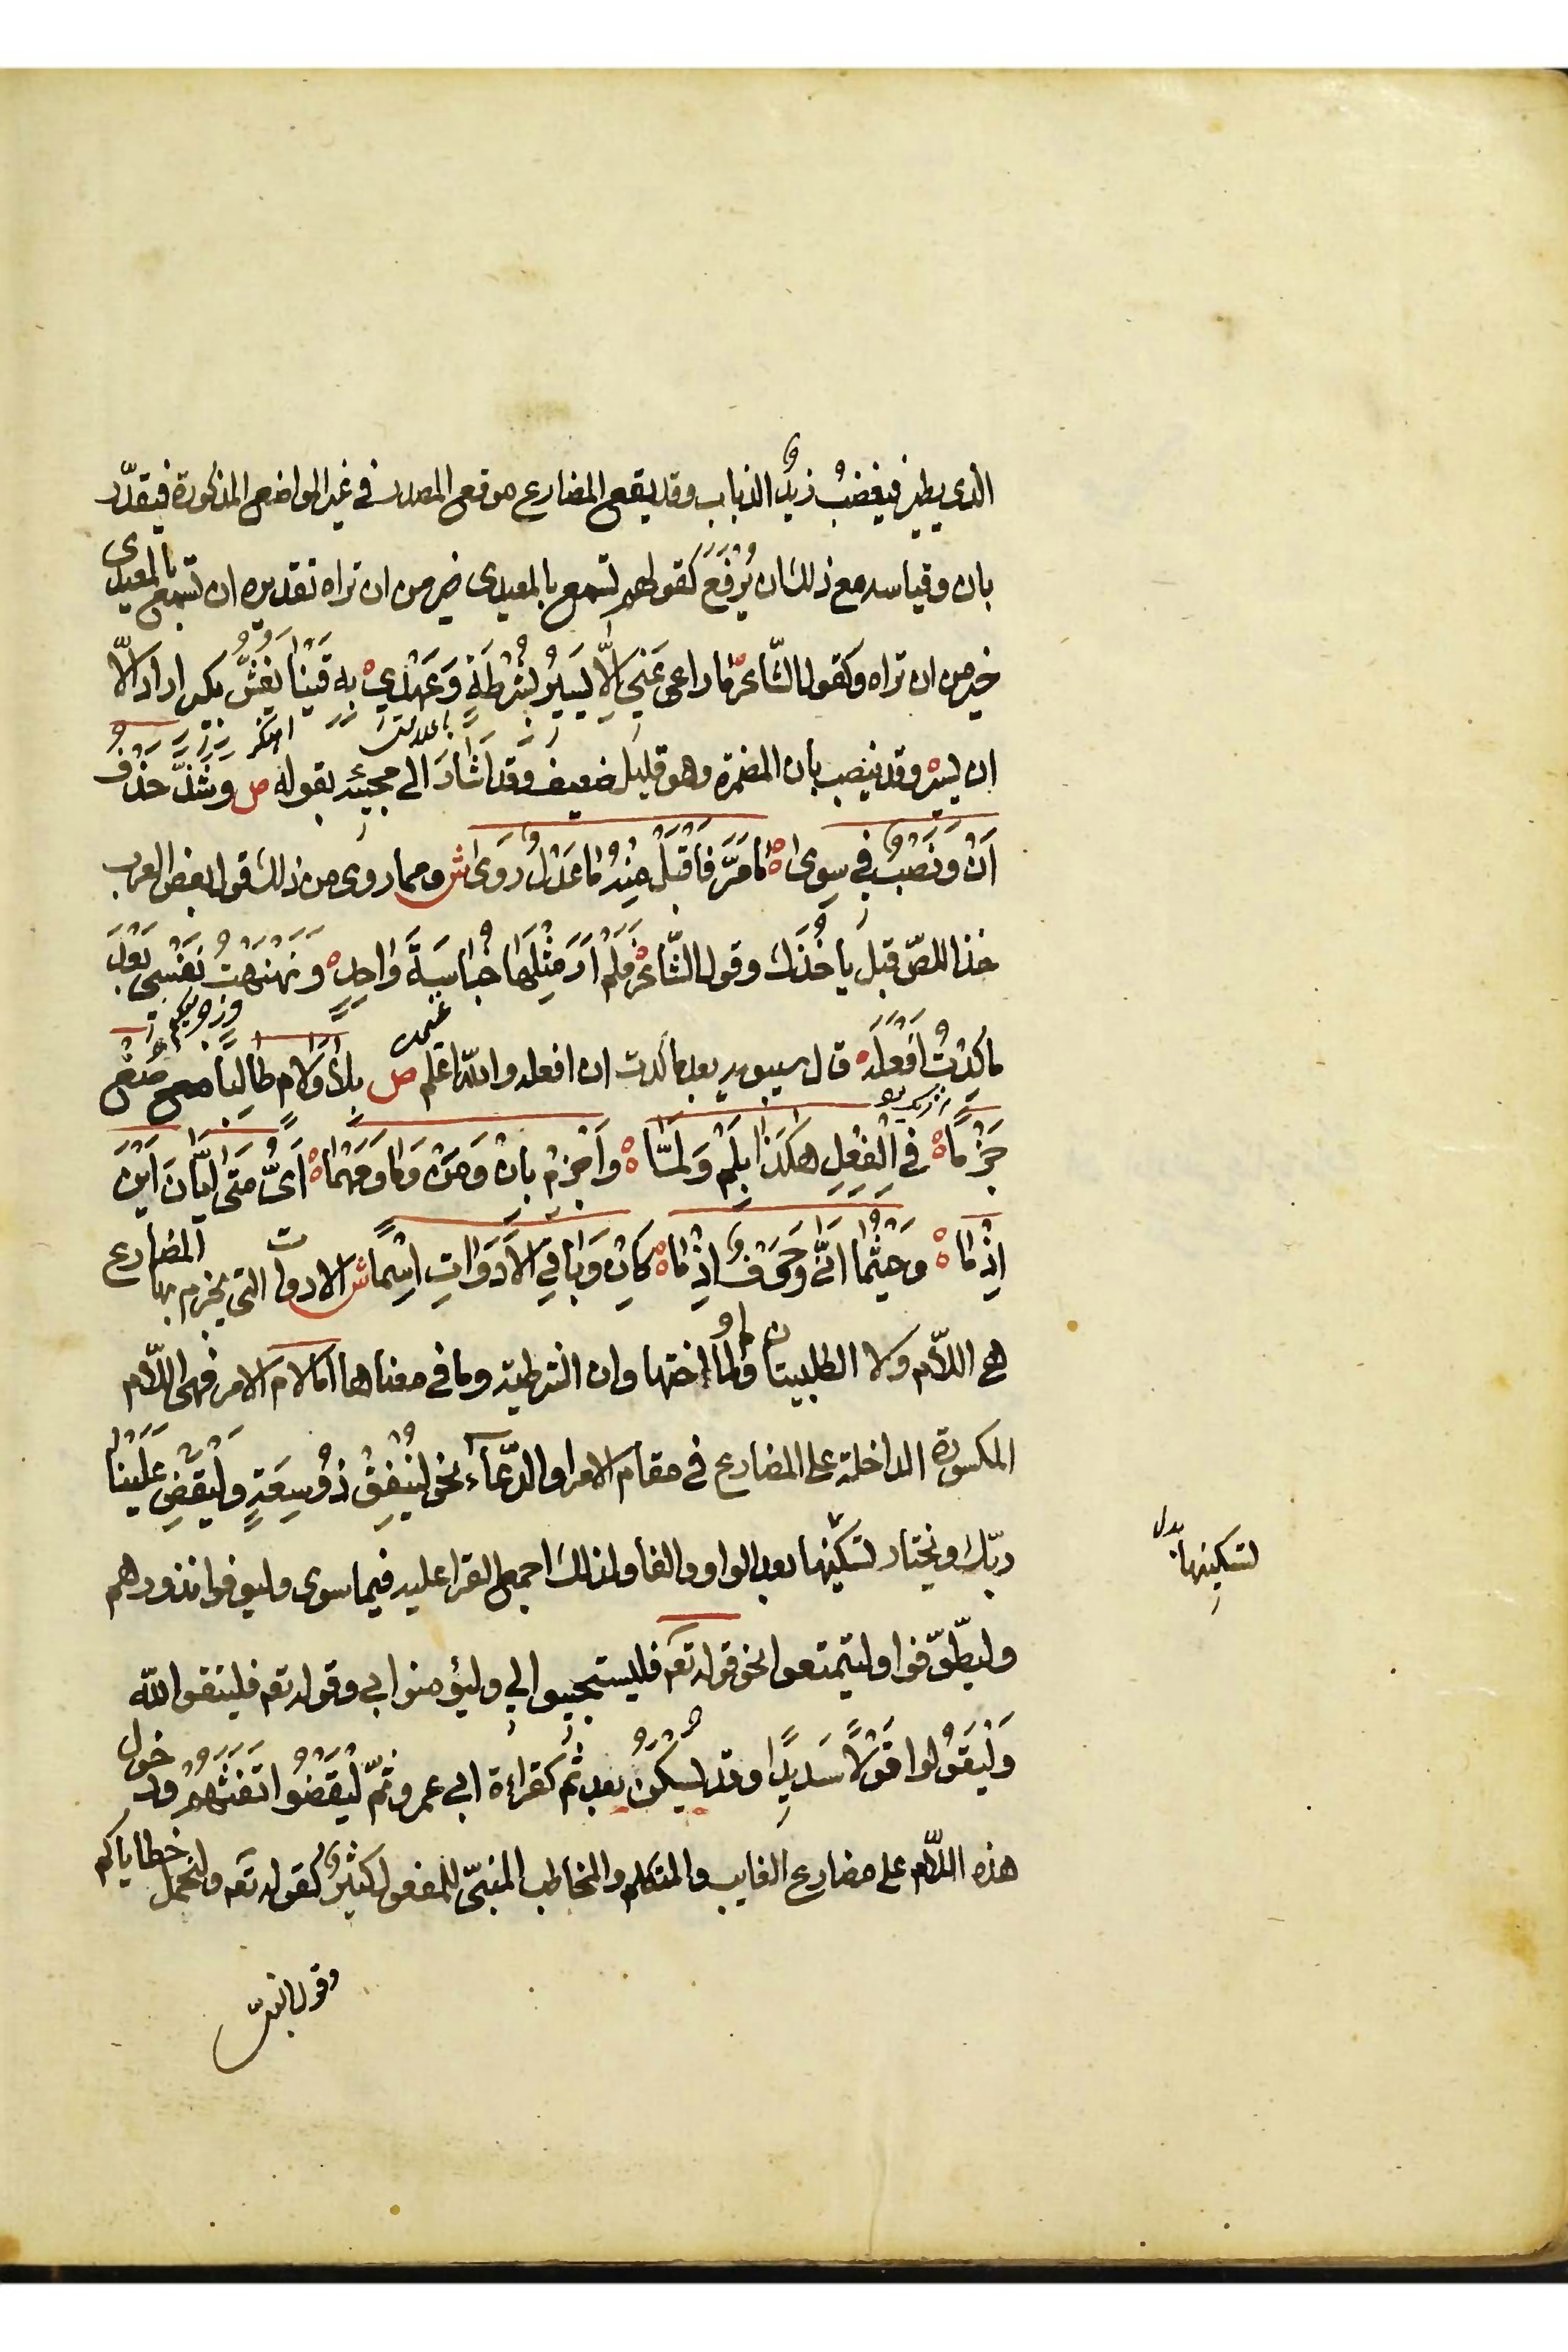 الذى يطير فيغضبُ زيدٌ الذباب وقد يقع المضارع موقع المصدر فى غير المواضع المذكورة فيقدّر
بان وقياسه مع ذلك ان يُرْفَعَ كقولهم تسمع بالمعيدى خير من ان تراه تقديره ان تسمع بالمعيدى
خير من ان تراه وكقول الشّاعر وما راعى عَنِى اِلَّا يَسِيرُ بِشُرْطَةٍ وَعَهْدِي بِهِ قَيْنًا يَفُشُّ بكير اراد الّا
ان يسير وقد ينصب بأن المضمرة وهو قليل ضعيف وقد اَشَارَ الى مجيئه بقوله ص وشَذَّ حَذْفُ
اَنْ وَنَصْبٌ فِي سِوى مَا مَرَّ فَاقْبَلْ مِنْهُ مَا عَدْلٌ رَوَى ش ومما روى من ذلك قول بعض العرب
خذ اللصّ قبل يأخُذَك وقول الشّاعر فَلَمْ اَرَ مِثْلَهَا خُبَاسَةَ وَاحِدٍ وَنَهْنَهْتُ نَفْسِى بَعْدَ
مَا كِدْتُ اَفْعَلَهُ قال سيبويه يعد ما كدت ان افعله والله اعلم ص بِلَا وَلَامٍ طَالِبًا ضَعْ
جَزْمًا فِي الْفِعْلِ هكَذَا بِلَمْ وَلَمَّا وَاَجْزِمْ بِاِنْ وَمَنْ وَمَا وَمَهْمَا اَىٍّ مَتَى اَيَّانَ اَيْنَ
اِذْمَا وَحَيْثُمَا اَنَّى وَحَرْفٌ اِذْمَا كَاِنْ وَبَاقِي الْاَدَوَاتِ اَسْمَا ش الادوات التى يجزم بها المضارع
هى اللّام ولا الطلبيتان ولم ولما اختها وان الشرطية وما فى معناها اما لام الامر فهى اللّام
المكسورة الداخلة على المضارع فى مقام الامر او الدّعآء نحو لِيُنْفِقْ ذُو سَعَةٍ وَلِيَقْضِ عَلَيْنَا
ربّك ويختار تسكينها بعد الواو والفا ولذلك اجمع القرا عليه فيما سوى وليوفوا نذورهم
لتسكينها بدل
وليطّوّفوا وليتمتعوا نحو قوله تعه فليستجيبوا لي وليؤمنوا بي وقوله تعه فليتقوا الله
وَلْيَقُولُوا قَوْلًا سَدِيدًا وقد تُسَكَّنُ بعد ثم كقراءة ابى عمرو ثُمّ لْيَقْضُوا تَفَثَهُمْ ودخول
هذه اللّام على مضارع الغايب والمتكلم والمخاطب المبنىّ للمفعول كثيرٌ كقوله تعه ولنحمل خطاياكم
وقول النبى